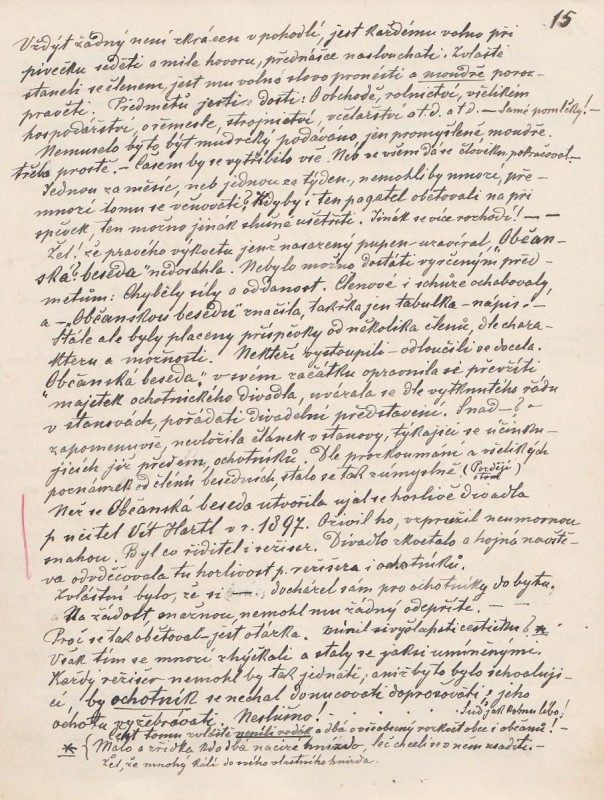 15
Vždyť žádný není zkrácen v pohodlí, jest každému volno při
pivečku seděti a mile hovoru, přednášce naslouchati. Zvláště
staneli se členem, jest mu volno slovo pronésti a moudré poroz-
pravěti. Předmětů jesti dosti: O obchodě, rolnictví, všelikém
hospodářství, o řemesle, strojnictví, včelařství a t. d. a t. d. — Samé pomlčky! —
Nemuselo by to být mudrčky podáváno, jen promyšleně moudře.
třeba prostě. — Časem by se vytříbilo vše. Neb se vším dá se člověku pokračovat. —
Jednou za měsíc, neb jednou za týden, nemohli by mnozí, pře-
mnozí tomu se věnovati? Kdyby i ten pagatel obětovali na pří
spěvek, ten možno jinák slušně ušetřiti. Jinák se více rozhodí! — —
Žel! že pravého výkvětu jenž nasazený pupen uzavíral, "Občan-
ská beseda" nedosáhla. Nebylo možno dostáti vyrčeným před-
metům: Chyběly síly a oddanost. Členové i schůze ochabovaly,
a — "Občanskou besedu" značila, takřka jen tabulka — nápis. —
Stále ale byly placeny příspěvky od několika členů, dle chara-
kteru a možnosti. Někteří vystoupili — odloučili se docela.
"Občanská beseda", v svém začátku oprávnila se převzíti
majetek ochotnického divadla, uvázala se dle vytknutého řádu
v stanovách, pořádati divadelní představení. Snad — ? —
zapomenuvše, nevložila článek v stanovy, týkající se účinku-
jících již předem, ochotníků. Dle prozkoumání a všelikých
poznámek od členů besedních, stalo se tak zúmyslně. (Později o tom)
Než se Občanská beseda utvořila ujal se horlivě divadla
p. učitel Vít Hartl v r. 1897. Oživil ho, vzpružil neúmornou
snahou. Byl co řiditel i režiser. Divadlo zkvetalo a hojná návště-
va odvděčovala tu horlivost p. režisera i ochotníků.
Zvláštní bylo, že si docházel sám pro ochotníky do bytu.
Na žádost, snažnou, nemohl mu žádný odepříti. —
Proč se tak obětoval — jest otázka. mínil si vyšlapati cestičku? *
Však tím se mnozí zhýčkali a staly se jaksi umíněnými.
Každý režiser nemohl by tak jednati, aniž by to bylo schvalují-
cí, by ochotník se nechal donucovati doprošovati, jeho
ochotu vyžebrávati. Neslušno! . . . . . Suď jak komu libo!
tomu zvláště není-li rodák a dbá o všeobecný rozkvět obce i občanů! —
* { Málo a zřídka kdo dbá na cizé hnízdo, leč chceli se v něm usaditi. —
Žel, že mnohý kálí do svého vlastního hnízda.